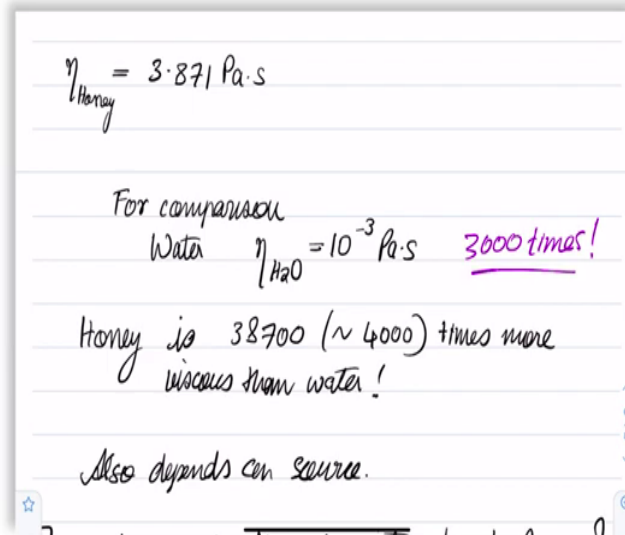 η_Honey = 3.871 Pa.s
For comparison
Water η_H2O = 10^-3 Pa.s 3000 times!
Honey is 38700 (~ 4000) times more
viscous than water!
Also depends on source.